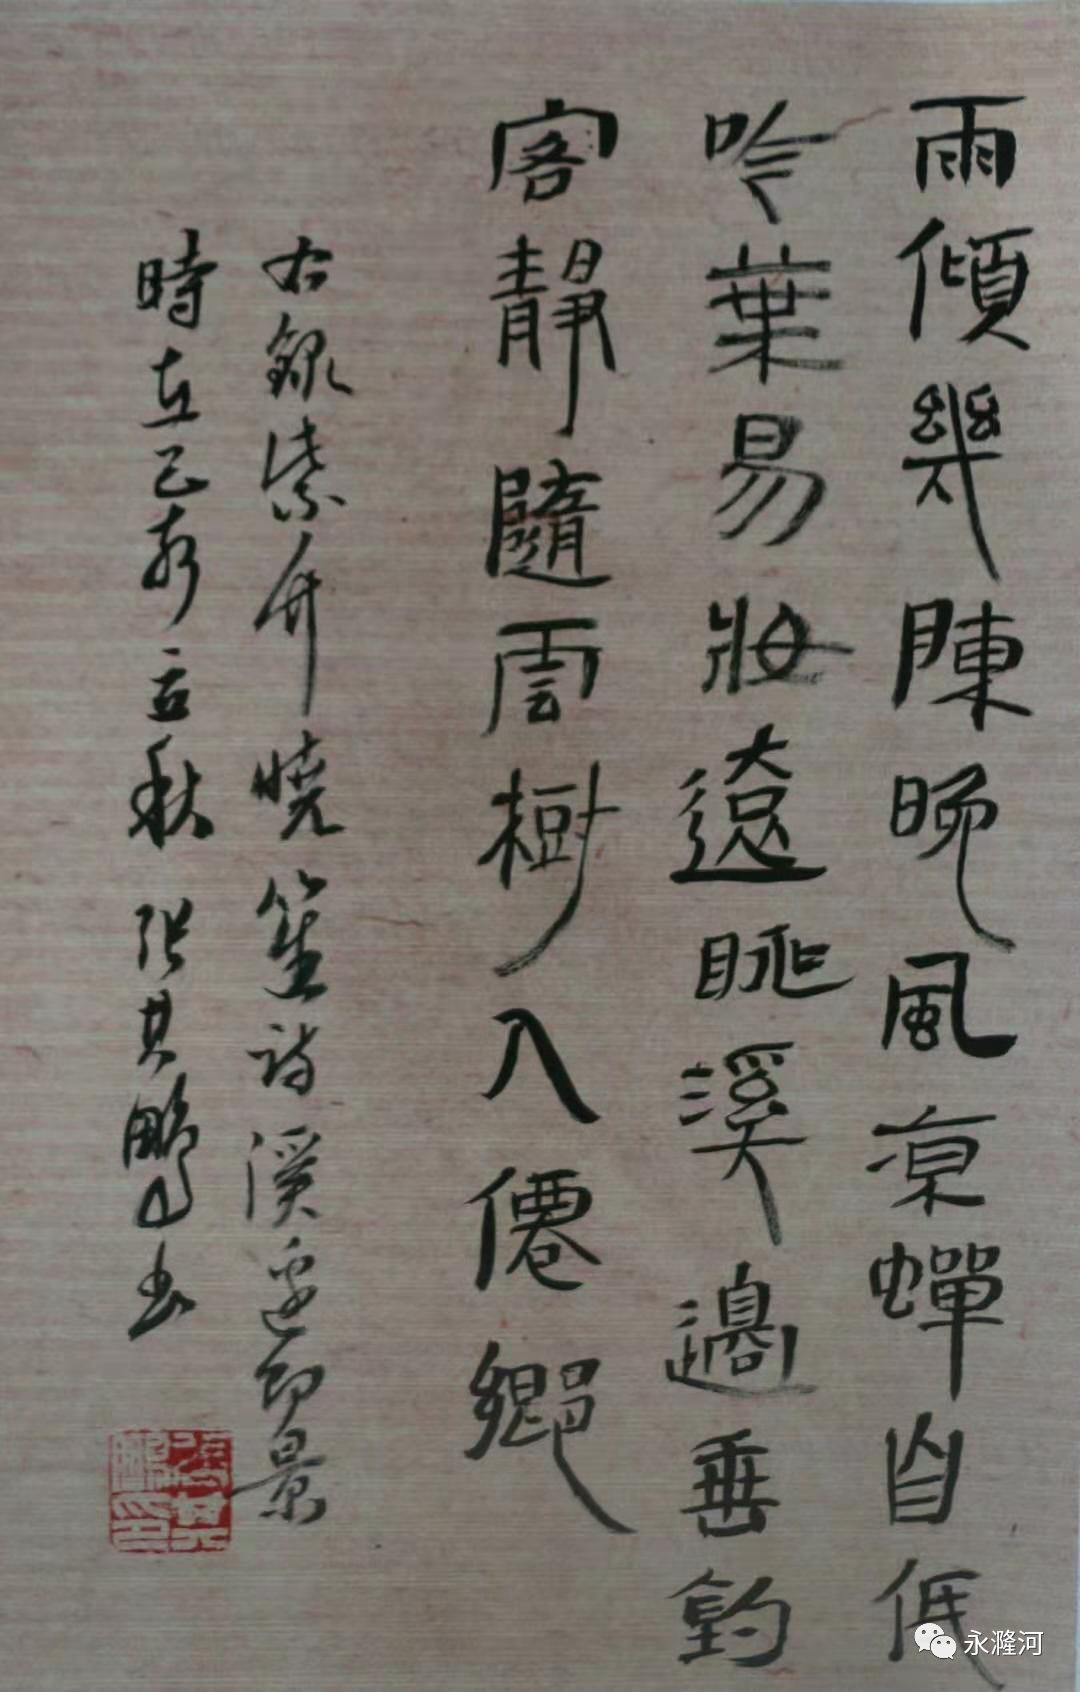 雨傾幾陳晚風凉蟬自低
吟葉易妝遠眺溪邊垂釣
客靜隨雲樹入僊鄉
右錄紫竹曉笙詩溪邊即景
時在己亥立秋張其鵬書
張其鵬印
永漋河